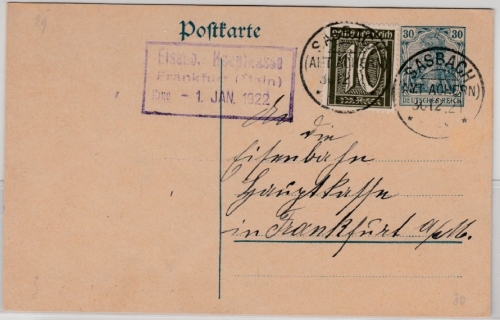 Postkarte
Eisenb. Hauptkasse
Frankfurt (Main)
Eing. - 1. JAN. 1922
Deutsches Reich
10
SASBACH
(AMT ACHERN)
30
30
DEUTSCHES REICH
SASBACH
(AMT ACHERN)
30.12.21
An
die
Eisenbahn
Hauptkasse
in Frankfurt a/M.